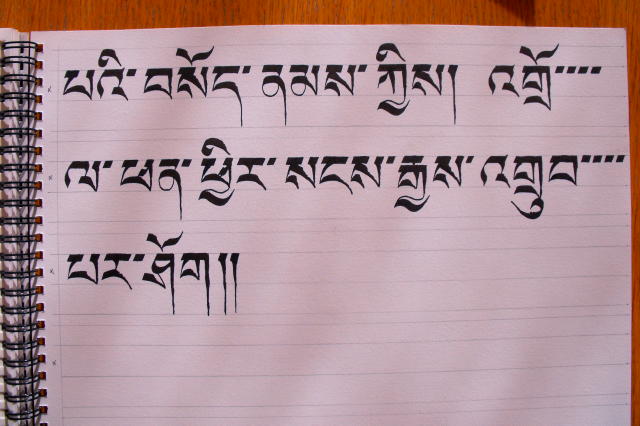 པའི་བསོད་ནམས་ཀྱིས། འགྲོ་་་་
ལ་ཕན་ཕྱིར་སངས་རྒྱས་འགྲུབ་་་་
པར་ཤོག།།